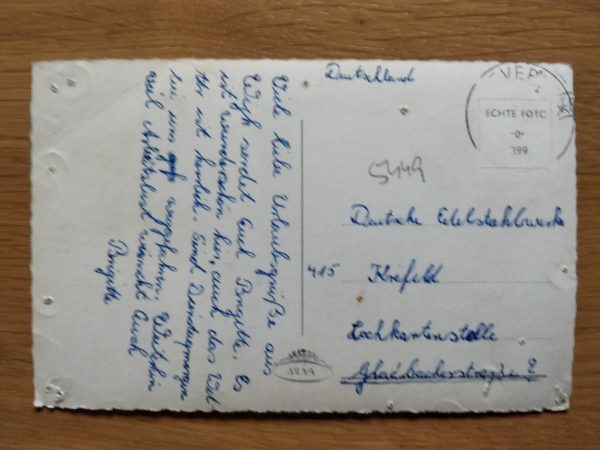 Viele liebe Urlaubsgrüße aus
Wijk sendet Euch Brigitte. Es
ist wunderschön hier, auch das Wet
ter ist herrlich. Sind Dienstagmorgen
um weggefahren. Weiterhin
viel Arbeitslust wünscht Euch
Brigitte
Deutschland
ECHTE FOTO
-0-
399
5449
Deutsche Edelstahlwerke
415 Krefeld
Lochkartenstelle
Gladbacherstraße ?